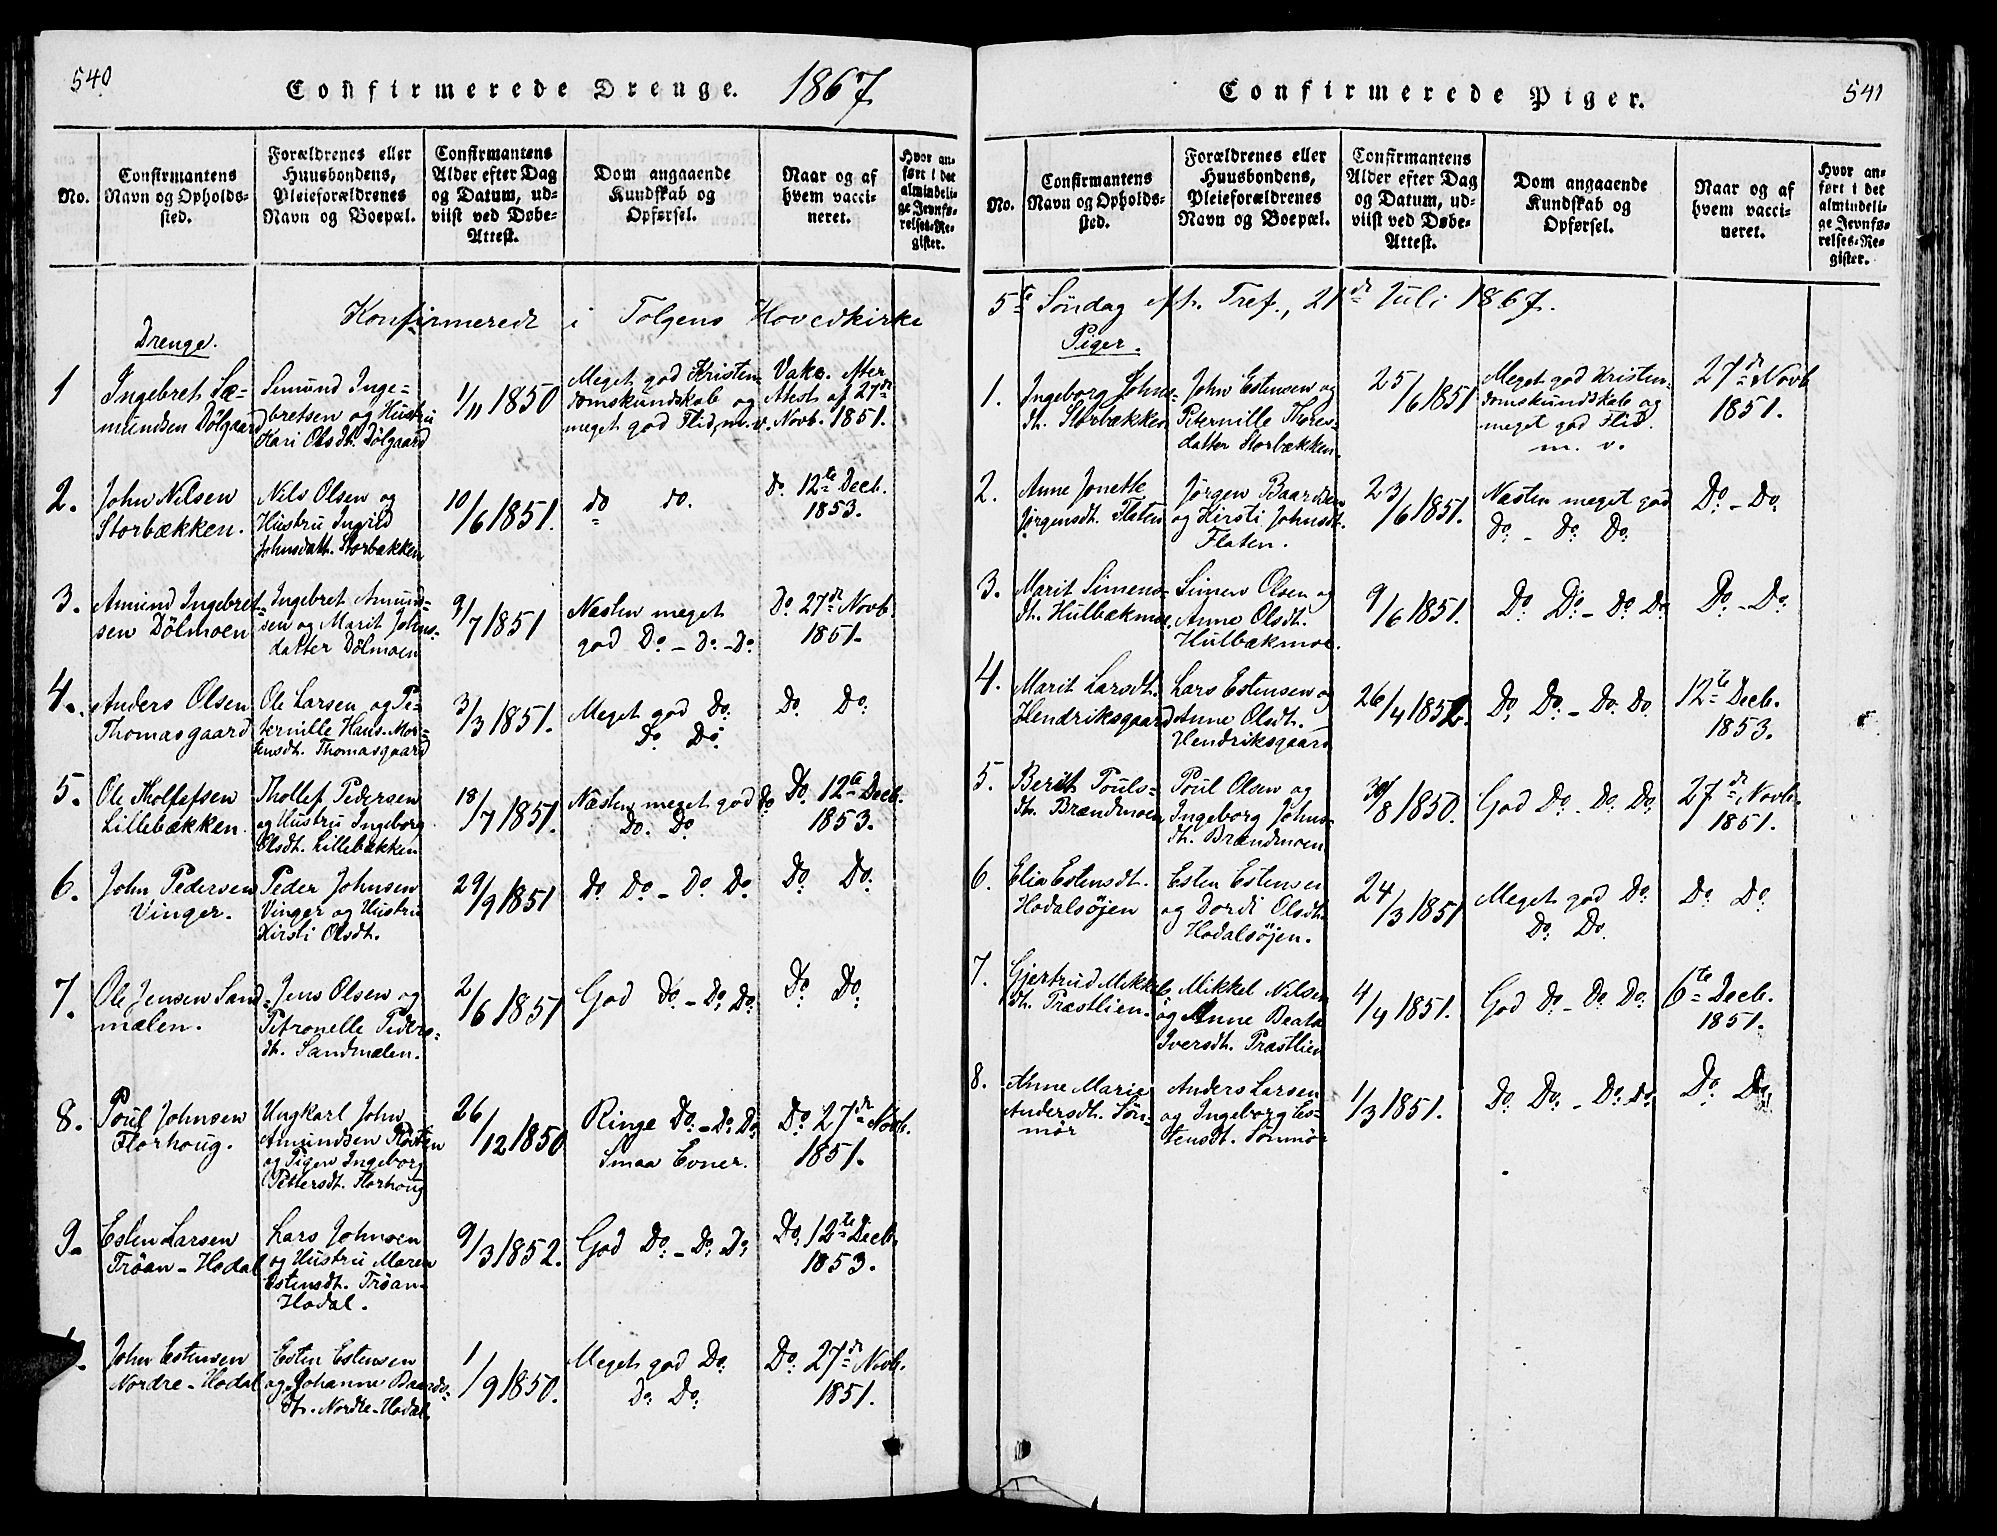 540
Confirmerede Drenge. 1867
No.
Confirmantens Navn og Opholdssted.
Forældrenes eller Huusbondens, Pleieforældrenes Navn og Boepæl.
Confirmantens Alder efter Dag og Datum, udviist ved Døbe-Attest.
Dom angaaende Kundskab og Opførsel.
Naar og af hvem vaccineret.
Hvor anført i det almindelige Jevnførelses-Register.
Konfirmerede i Tolgens Hovedkirke
Drenge.
1 Ingebret Sæ-
mundsen Dölgaard
Semund Inge-
bretsen og Hustru
Kari Olsdt. Dölgaard
1/11 1850
Meget god Kristen-
domskundskab og
meget god Flid, m. v.
Vakc. After
Attest af 27de
Novb. 1851.
2. John Nilsen
Storbækken.
Nils Olsen og
Hustru Ingrid
Johnsdatt. Storbækken
10/6 1851.
do do.
do. 12te Decb.
1853.
3. Amund Ingebret-
sen Dölmoen
Ingebret Amund-
sen og Marit Johns-
datter Dölmoen
9/7 1851
Næsten meget
god Do - Do - Do
Do. 27de Novb.
1851.
4. Anders Olsen
Thomasgaard
Ole Larsen og Pe-
ternille Hans Mor-
tensdt. Thomasgaard
3/3 1851.
Meget god Do.
Do Do
Do. Do.
5. Ole Tholfefsen
Lillebækken.
Thollef Pedersen
og Hustru Ingeborg
Olsdt. Lillebækken
18/7 1851.
Næsten meget god Do
Do. Do
Do. 12te Decb.
1853.
6. John Pedersen
Vinger.
Peder Johnsen
Vinger og Hustru
Kirsti Olsdt.
29/9 1851
Do Do - Do Do.
Do Do.
7. Ole Jensen Sand-
mælen.
Jens Olsen og
Petronelle Peders-
dt. Sandmælen.
2/6 1851
God Do - Do Do
Do Do.
8. Poul Johnsen
Florhoug.
Ungkarl John
Amundsen
og Pigen Ingeborg
Pettersdt. Florhoug
26/12 1850
Ringe Do. - Do Do
Smaa Evner.
Do 27de Novb.
1851.
9. Esten Larsen
Tröan - Hodal
Lars Johnsen
og Hustru Maren
Estensdt. Tröan-
Hodal.
9/3 1852.
God Do. - Do. Do
Do. 12te Decb.
1853.
John Estensen
Nordre - Hodal
Esten Estensen
og Johanne Baards-
dt. Nordre-Hodal.
1/9 1850.
Meget god Do.
Do Do.
Do. 27de Novb.
1851.
Confirmerede Piger.
541
No.
Confirmantens Navn og Opholdssted.
Forældrenes eller Huusbondens, Pleieforældrenes Navn og Boepæl.
Confirmantens Alder efter Dag og Datum, udviist ved Døbe-Attest.
Dom angaaende Kundskab og Opførsel.
Naar og af hvem vaccineret.
Hvor anført i det almindelige Jevnførelses-Register.
5te Söndag eft. Tref., 21de Juli 1867.
Piger.
1. Ingeborg Johns-
dt. Storbækken
John Estensen og
Peternille Thores-
datter Storbækken.
25/6 1851
Meget god Kristen-
domskundskab og
meget god Flid.
m. v.
27de Novb
1851.
2. Anne Jonette
Jörgensdt. Flaten
Jörgen Baardsen
og Kirsti Johnsdt.
Flaten.
23/6 1851.
Næsten meget god
Do. - Do. Do.
Do. - Do.
3. Marit Simens-
dt. Hulbækmoe
Simen Olsen og
Anne Olsdt.
Hulbækmoe.
9/6 1851.
Do. Do - Do Do.
Do. - Do.
4. Marit Larsdt.
Hendriksgaard
Lars Estensen og
Anne Olsdt.
Hendriksgaard
26/4 1852.
Do. Do. - Do. Do.
12te Decb.
1853.
5. Berit Pouls-
dt. Brændmoen
Poul Olsen og
Ingeborg Johns-
dt. Brændmoen
30/8 1850.
God Do. - Do. Do.
27de Novb.
1851.
6. Elia Estensdt.
Hodalsöjen
Esten Estensen
og Dordi Olsdt.
Hodalsöjen.
24/3 1851
Meget god Do.
Do. Do.
Do. Do.
7. Gjertrud Mikkels-
dt. Træstlien.
Mikkel Nilsen
og Anne Beata
Iversdt. Træstlien
4/4 1851.
God Do. - Do. Do.
6te Decb.
1851.
8. Anne Marie
Andersdt. Sön-
mör
Anders Larsen
og Ingeborg Es-
tensdt. Sönmör
1/3 1851.
Do. Do. - Do Do.
Do. Do.